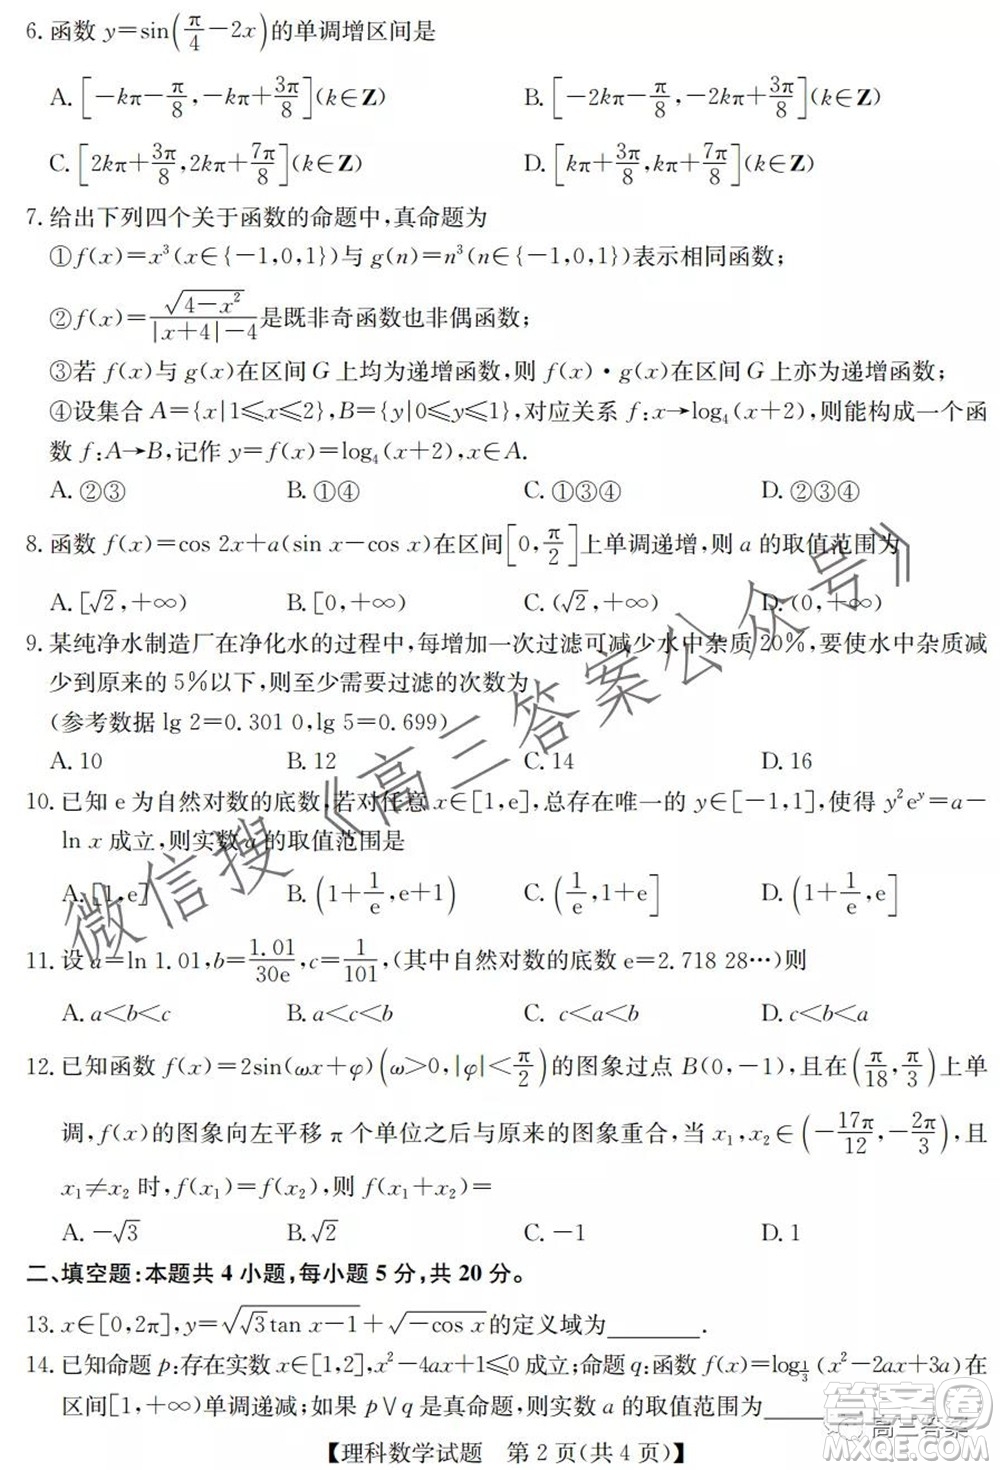 6. 函数 y=sin(π/4-2x)的单调增区间是
A. [-kπ-π/8,-kπ+3π/8](k∈Z) B. [-2kπ-π/8,-2kπ+3π/8](k∈Z)
C. [2kπ+3π/8,2kπ+7π/8](k∈Z) D. [kπ+3π/8,kπ+7π/8](k∈Z)
7. 给出下列四个关于函数的命题中,真命题为
①f(x)=x³(x∈{-1,0,1})与 g(n)=n³(n∈{-1,0,1})表示相同函数;
②f(x)=√(4-x²)/(|x+4|-4)是既非奇函数也非偶函数;
③若 f(x)与 g(x)在区间 G 上均为递增函数,则 f(x)·g(x)在区间 G 上亦为递增函数;
④设集合 A={x|1≤x≤2},B={y|0≤y≤1},对应关系 f:x→log₄(x+2),则能构成一个函
数 f:A→B,记作 y=f(x)=log₄(x+2),x∈A.
A. ②③ B. ①④ C. ①③④ D. ②③④
8. 函数 f(x)=cos 2x+a(sin x-cos x)在区间[0,π/2]上单调递增,则 a 的取值范围为
A. [√2,+∞) B. [0,+∞) C. (√2,+∞) D. (0,+∞)
9. 某纯净水制造厂在净化水的过程中,每增加一次过滤可减少水中杂质20%,要使水中杂质减
少到原来的 5%以下,则至少需要过滤的次数为
(参考数据 lg 2=0.301 0,lg 5=0.699)
A. 10 B. 12 C. 14 D. 16
10. 已知 e 为自然对数的底数,若对任意 x∈[1,e],总存在唯一的 y∈[-1,1],使得 y²eʸ=a-
ln x 成立,则实数 a 的取值范围是
A. [1,e] B. (1+1/e,e+1) C. (1/e,1+e] D. (1+1/e,e]
11. 设 a=ln 1.01,b=1.01/30e,c=1/101,(其中自然对数的底数 e=2.718 28…)则
A. a<b<c B. a<c<b C. c<a<b D. c<b<a
12. 已知函数 f(x)=2sin(ωx+φ)(ω>0,|φ|<π/2)的图象过点 B(0,-1),且在(π/18,π/3)上单
调,f(x)的图象向左平移 π 个单位之后与原来的图象重合,当 x₁,x₂∈(-17π/12,-2π/3),且
x₁≠x₂ 时,f(x₁)=f(x₂),则 f(x₁+x₂)=
A. -√3 B. √2 C. -1 D. 1
二、填空题:本题共 4 小题,每小题 5 分,共 20 分。
13. x∈[0,2π],y=√(√3tan x-1)+√(-cos x)的定义域为________.
14. 已知命题 p:存在实数 x∈[1,2],x²-4ax+1≤0 成立;命题 q:函数 f(x)=log_{1/3}(x²-2ax+3a)在
区间[1,+∞)单调递减;如果 p∨q 是真命题,则实数 a 的取值范围为________
【理科数学试题 第 2 页(共 4 页)】
微信搜《高三答案公众号》
答案圈
高三答案
MXQE.COM